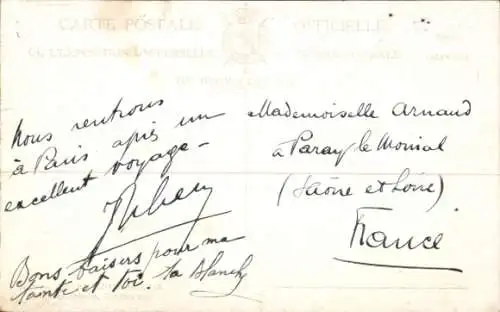 CARTE POSTALE OFFICIELLE
DE L'EXPOSITION UNIVERSELLE
Nous rentrons
à Paris après un
excellent voyage -
Bons baisers pour ma
tante et toi. ta Blanche
Mademoiselle Arnaud
à Paray le Monial
(Saône et Loire)
France